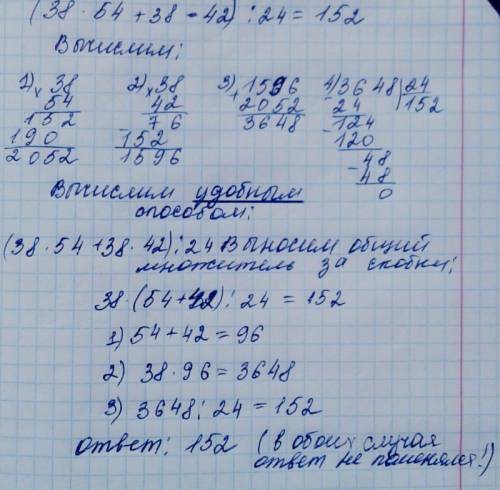 (38 · 54 + 38 · 42) : 24 = 152
Вычислим:
1) × 38 2) × 38 3) + 1596 4) 3648 | 24
54 42 2052 24 152
152 76 3648 - 124
190 152 120
2052 1596 - 48
48
0
Вычислим удобным
способом:
(38 · 54 + 38 · 42) : 24 Выносим общий
множитель за скобки:
38 · (54 + 42) : 24 = 152
1) 54 + 42 = 96
2) 38 · 96 = 3648
3) 3648 : 24 = 152
ответ: 152 (в обоих случая
ответ не поменялся!)